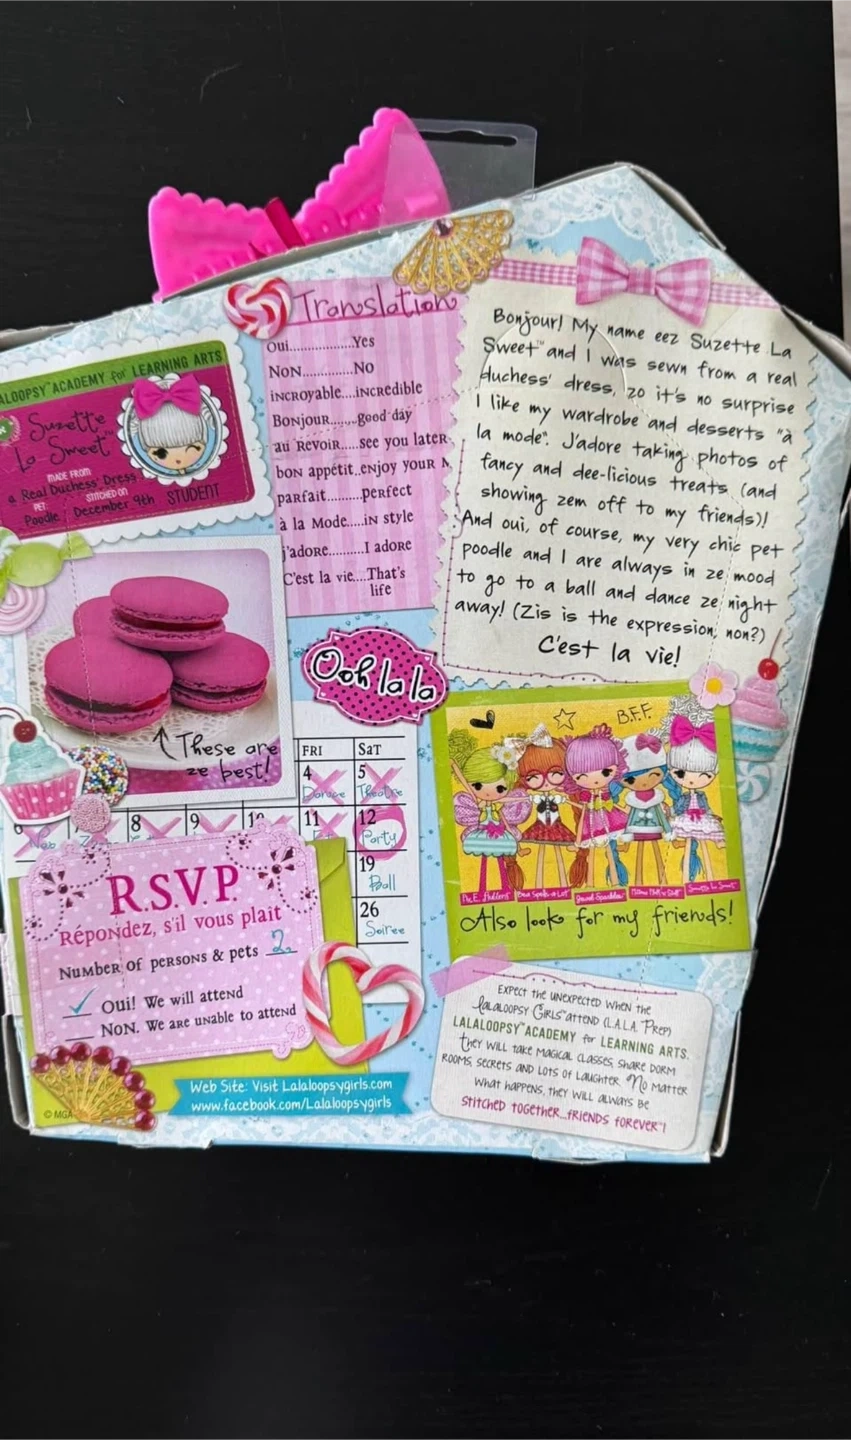 Translation
Oui................Yes
Non............No
incroyable....incredible
Bonjour.......good day
au Revoir.....see you later
bon appétit..enjoy your
parfait..........perfect
à la Mode....in style
j'adore..........I adore
C'est la vie....That's
life
Bonjour! My name eez Suzette La
Sweet™ and I was sewn from a real
duchess' dress, zo it's no surprise
I like my wardrobe and desserts "à
la mode". J'adore taking photos of
fancy and dee-licious treats (and
showing zem off to my friends)!
And oui, of course, my very chic pet
poodle and I are always in ze mood
to go to a ball and dance ze night
away! (Zis is the expression, non?)
C'est la vie!
ALOOPSY™ ACADEMY for LEARNING ARTS
Suzette
La Sweet™
MADE FROM
a Real Duchess' Dress
PET STITCHED ON
Poodle December 9th STUDENT
These are
ze best!
Ooh la la
FRI SAT
4 5
Dance Theatre
8 9 10 11 12
Party
19
Ball
26
Soiree
R.S.V.P.
Répondez, s'il vous plait
Number of persons & pets 2
✓ Oui! We will attend
Non. We are unable to attend
Web Site: Visit Lalaloopsygirls.com
www.facebook.com/Lalaloopsygirls
© MGA
B.F.F.
Also look for my friends!
Expect the unexpected when the
Lalaloopsy Girls™ attend (L.A.L.A. Prep)
LALALOOPSY™ ACADEMY for LEARNING ARTS.
They will take magical classes, share dorm
rooms, secrets and lots of laughter. No matter
what happens, they will always be
stitched together...friends forever™!